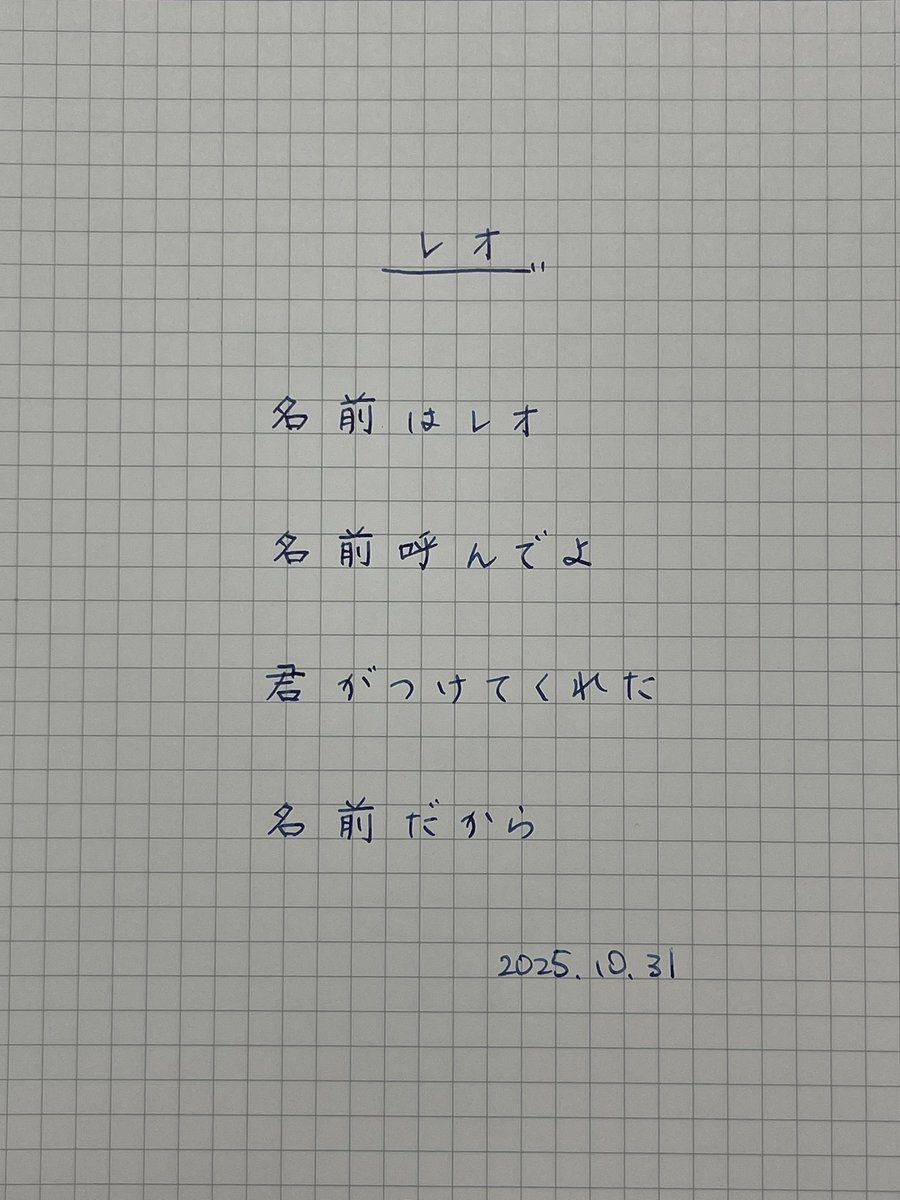 レオ
名前はレオ
名前呼んでよ
君がつけてくれた
名前だから
2025.10.31